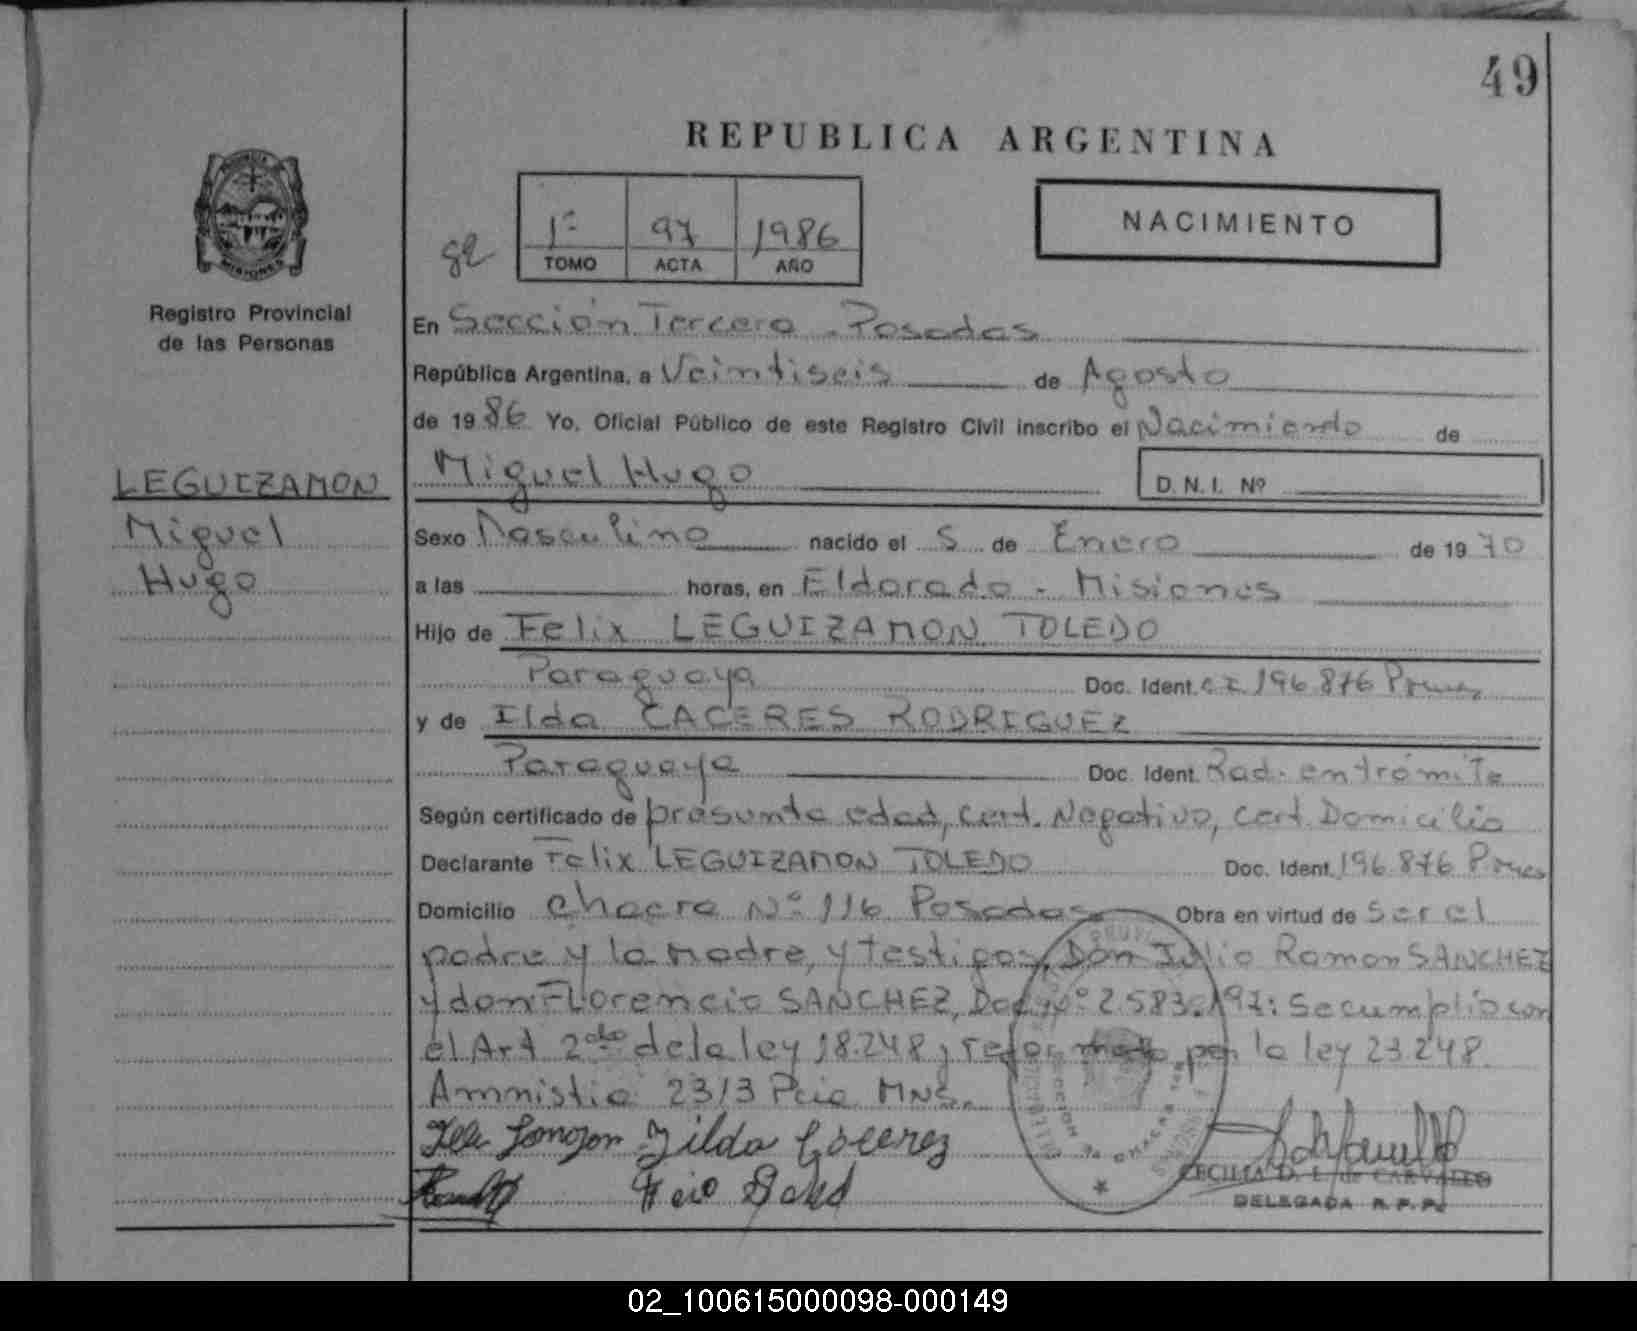 49
REPUBLICA ARGENTINA
NACIMIENTO
1º 97 1986
TOMO ACTA AÑO
MISIONES
Registro Provincial
de las Personas
En Sección Tercera - Posadas
República Argentina, a Veintiseis de Agosto
de 1986 Yo, Oficial Público de este Registro Civil inscribo el Nacimiento de
LEGUIZAMON
Miguel
Hugo
Miguel Hugo
D.N.I. Nº
Sexo Masculino nacido el 5 de Enero de 1970
a las horas, en Eldorado - Misiones
Hijo de Felix LEGUIZAMON TOLEDO
Paraguaya Doc. Ident. C.I. 196.876
y de Ilda CACERES RODRIGUEZ
Paraguaya Doc. Ident. Rad. en trámite
Según certificado de presunta edad, cert. Negativo, cert. Domicilio
Declarante Felix LEGUIZAMON TOLEDO Doc. Ident. 196.876
Domicilio Chacra Nº 116 Posadas Obra en virtud de Ser el
padre y la madre, y testigos, Don Julio Ramon SANCHEZ
y don Florencio SANCHEZ, Doc Nº 2.583.197: Se cumplió con
el Art 2do de la ley 18.248, reformado por la ley 23.248.
Amnistia 2313 Pcia MNS.
Zilda Caceres
CECILIA D. L. de CARVALLO
DELEGADA R.P.P.
02_100615000098-000149